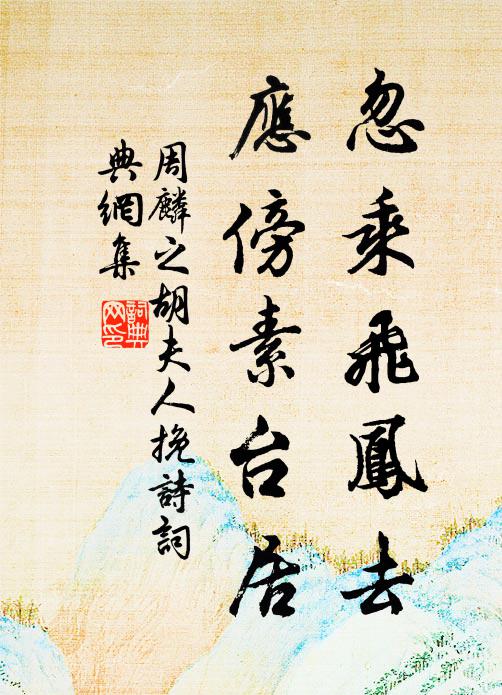 忽乘飛鳳去
應傍素台居
周麟之胡夫人挽詩詞
典網集
詞典網印